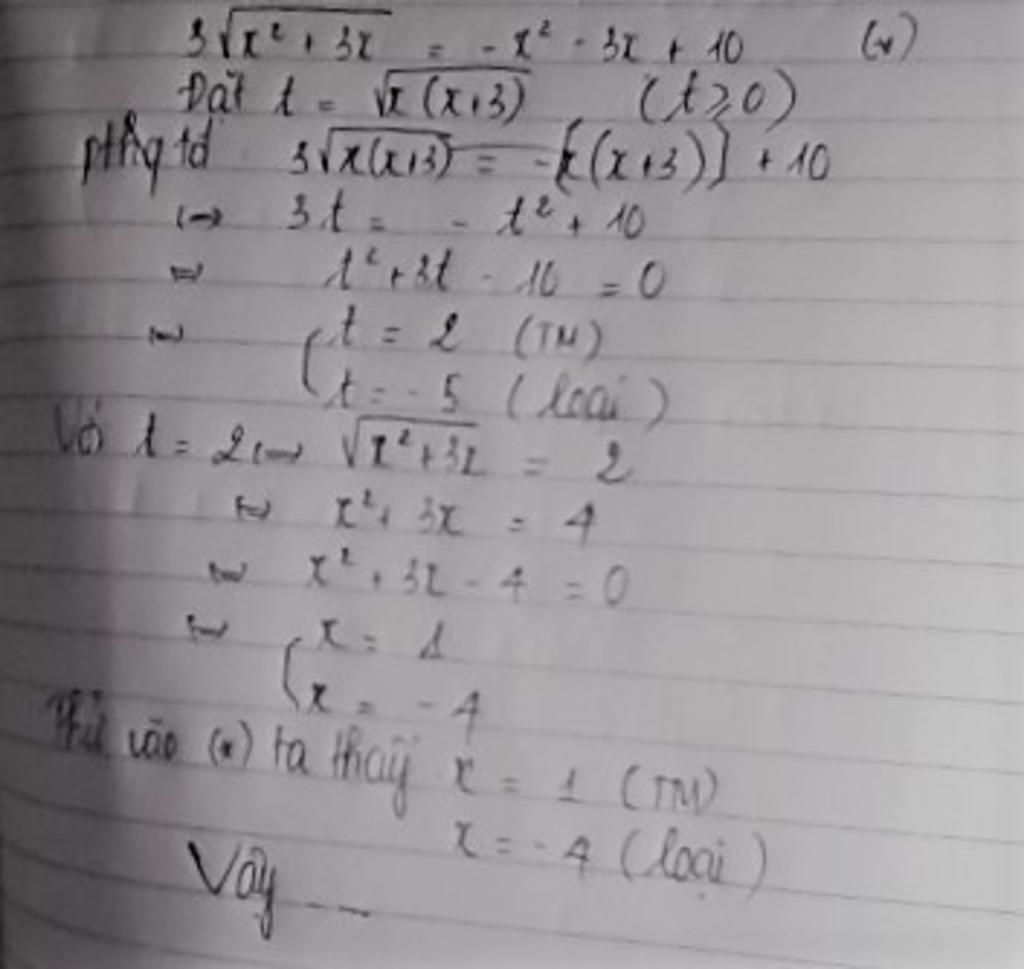 3√(x² + 3x) = -x² - 3x + 10 (*)
Đặt t = √(x(x+3)) (t ≥ 0)
ptrg tđ 3√(x(x+3)) = -[x(x+3)] + 10
↔ 3t = - t² + 10
⇔ t² + 3t - 10 = 0
⇔ [ t = 2 (TM)
t = - 5 (loại)
Với t = 2 ↔ √(x² + 3x) = 2
↔ x² + 3x = 4
↔ x² + 3x - 4 = 0
↔ [ x = 1
x = - 4
Thử vào (*) ta thấy x = 1 (TM)
x = - 4 (loại)
Vậy ...